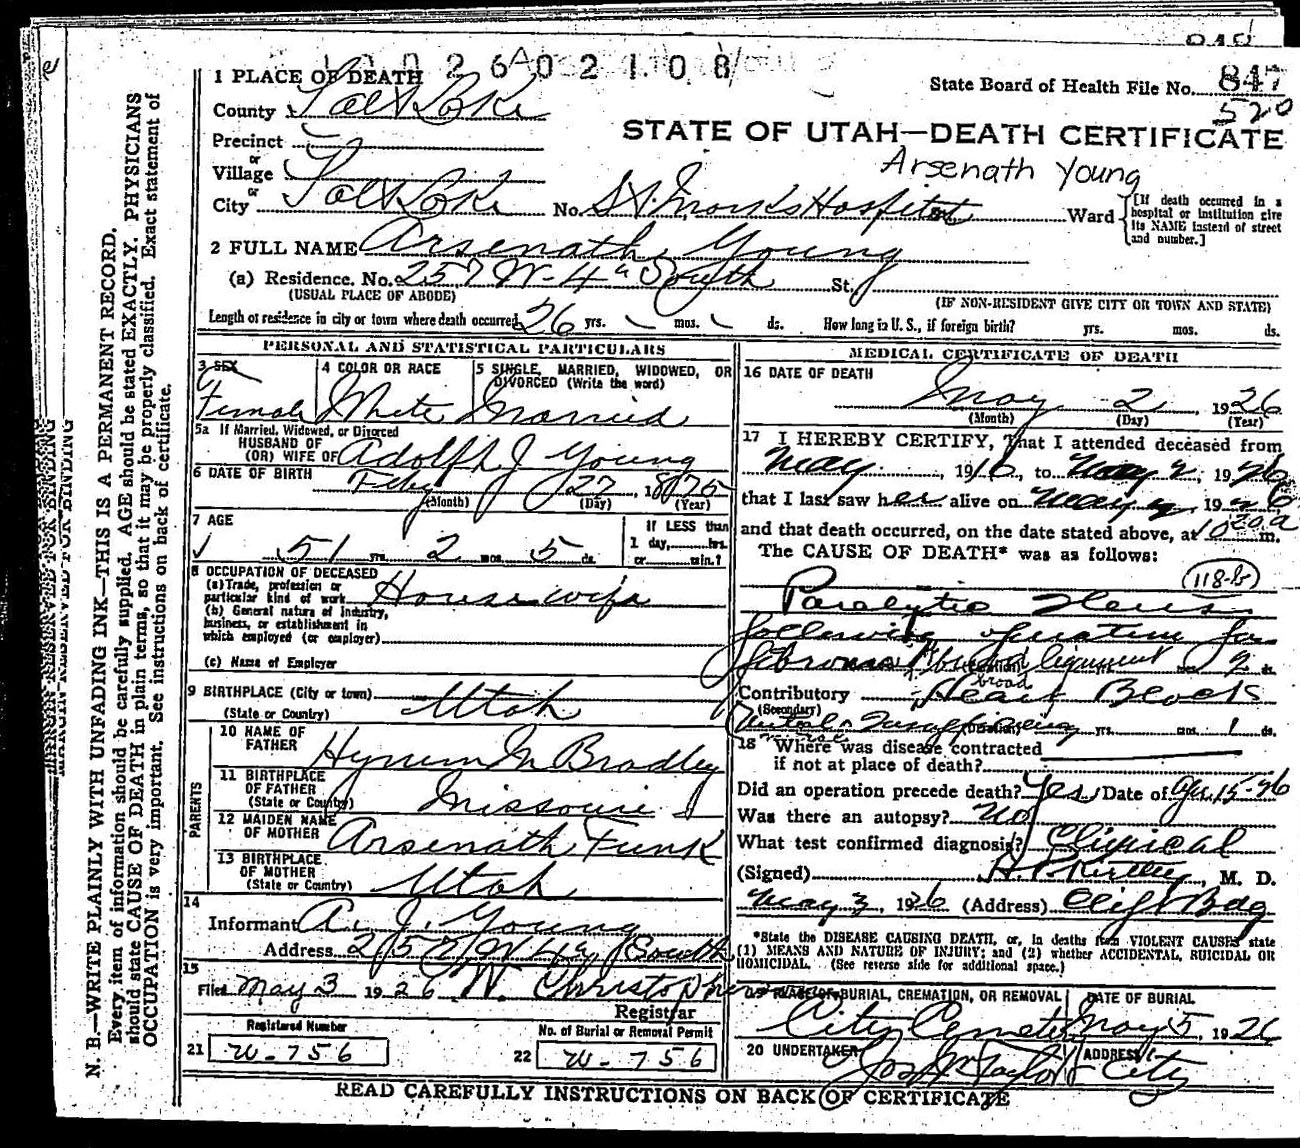 1 PLACE OF DEATH
State Board of Health File No. 847
520
County Salt Lake
STATE OF UTAH—DEATH CERTIFICATE
Arsenath Young
Precinct
or
Village
or
City Salt Lake No. St Marks Hospital Ward
[If death occurred in a hospital or institution give its NAME instead of street and number.]
2 FULL NAME Arsenath Young
(a) Residence. No. 257 W-4th South St.
(USUAL PLACE OF ABODE) (IF NON-RESIDENT GIVE CITY OR TOWN AND STATE)
Length of residence in city or town where death occurred 26 yrs. mos. ds. How long in U. S., if foreign birth? yrs. mos. ds.
PERSONAL AND STATISTICAL PARTICULARS
3 SEX Female
4 COLOR OR RACE White
5 SINGLE, MARRIED, WIDOWED, OR DIVORCED (Write the word) Married
5a If Married, Widowed, or Divorced
HUSBAND OF
(OR) WIFE OF Adolph J Young
6 DATE OF BIRTH Feby 27, 1875
(Month) (Day) (Year)
7 AGE 51 yrs. 2 mos. 5 ds.
If LESS than 1 day, hrs. or min.?
8 OCCUPATION OF DECEASED
(a) Trade, profession or particular kind of work Housewife
(b) General nature of industry, business, or establishment in which employed (or employer)
(c) Name of Employer
9 BIRTHPLACE (City or town) Utah
(State or Country)
PARENTS
10 NAME OF FATHER Hyrum M Bradley
11 BIRTHPLACE OF FATHER (State or Country) Missouri
12 MAIDEN NAME OF MOTHER Arsenath Funk
13 BIRTHPLACE OF MOTHER (State or Country) Utah
14
Informant A. J. Young
Address 257 W 4th South
15
Filed May 3 1926 W. Christopherson
Registrar
Registered Number
21 W-756
No. of Burial or Removal Permit
22 W-756
MEDICAL CERTIFICATE OF DEATH
16 DATE OF DEATH May 2, 1926
(Month) (Day) (Year)
17 I HEREBY CERTIFY, That I attended deceased from
May, 1916, to May 2, 1926
that I last saw her alive on May 2, 1926
and that death occurred, on the date stated above, at 10 20 a m.
The CAUSE OF DEATH* was as follows:
118-b
Paralytic Ileus
following operation for
fibroma broad ligament 2 ds.
(Duration)
broad
Contributory Heart Block
(Secondary)
Mitral (Duration) yrs. mos. 1 ds.
18 Where was disease contracted
if not at place of death?
Did an operation precede death? Yes Date of Apr. 15-26
Was there an autopsy? No
What test confirmed diagnosis? Clinical
(Signed) H.P. Kirtley, M. D.
May 3, 1926 (Address) Clift Bdg
*State the DISEASE CAUSING DEATH, or, in deaths from VIOLENT CAUSES state
(1) MEANS AND NATURE OF INJURY; and (2) whether ACCIDENTAL, SUICIDAL OR
HOMICIDAL. (See reverse side for additional space.)
19 PLACE OF BURIAL, CREMATION, OR REMOVAL DATE OF BURIAL
City Cemetery May 5, 1926
20 UNDERTAKER ADDRESS
Jos Wm Taylor City
READ CAREFULLY INSTRUCTIONS ON BACK OF CERTIFICATE
MARGIN RESERVED FOR BINDING
N. B.—WRITE PLAINLY WITH UNFADING INK—THIS IS A PERMANENT RECORD.
Every item of information should be carefully supplied. AGE should be stated EXACTLY. PHYSICIANS
should state CAUSE OF DEATH in plain terms, so that it may be properly classified. Exact statement of
OCCUPATION is very important. See instructions on back of certificate.